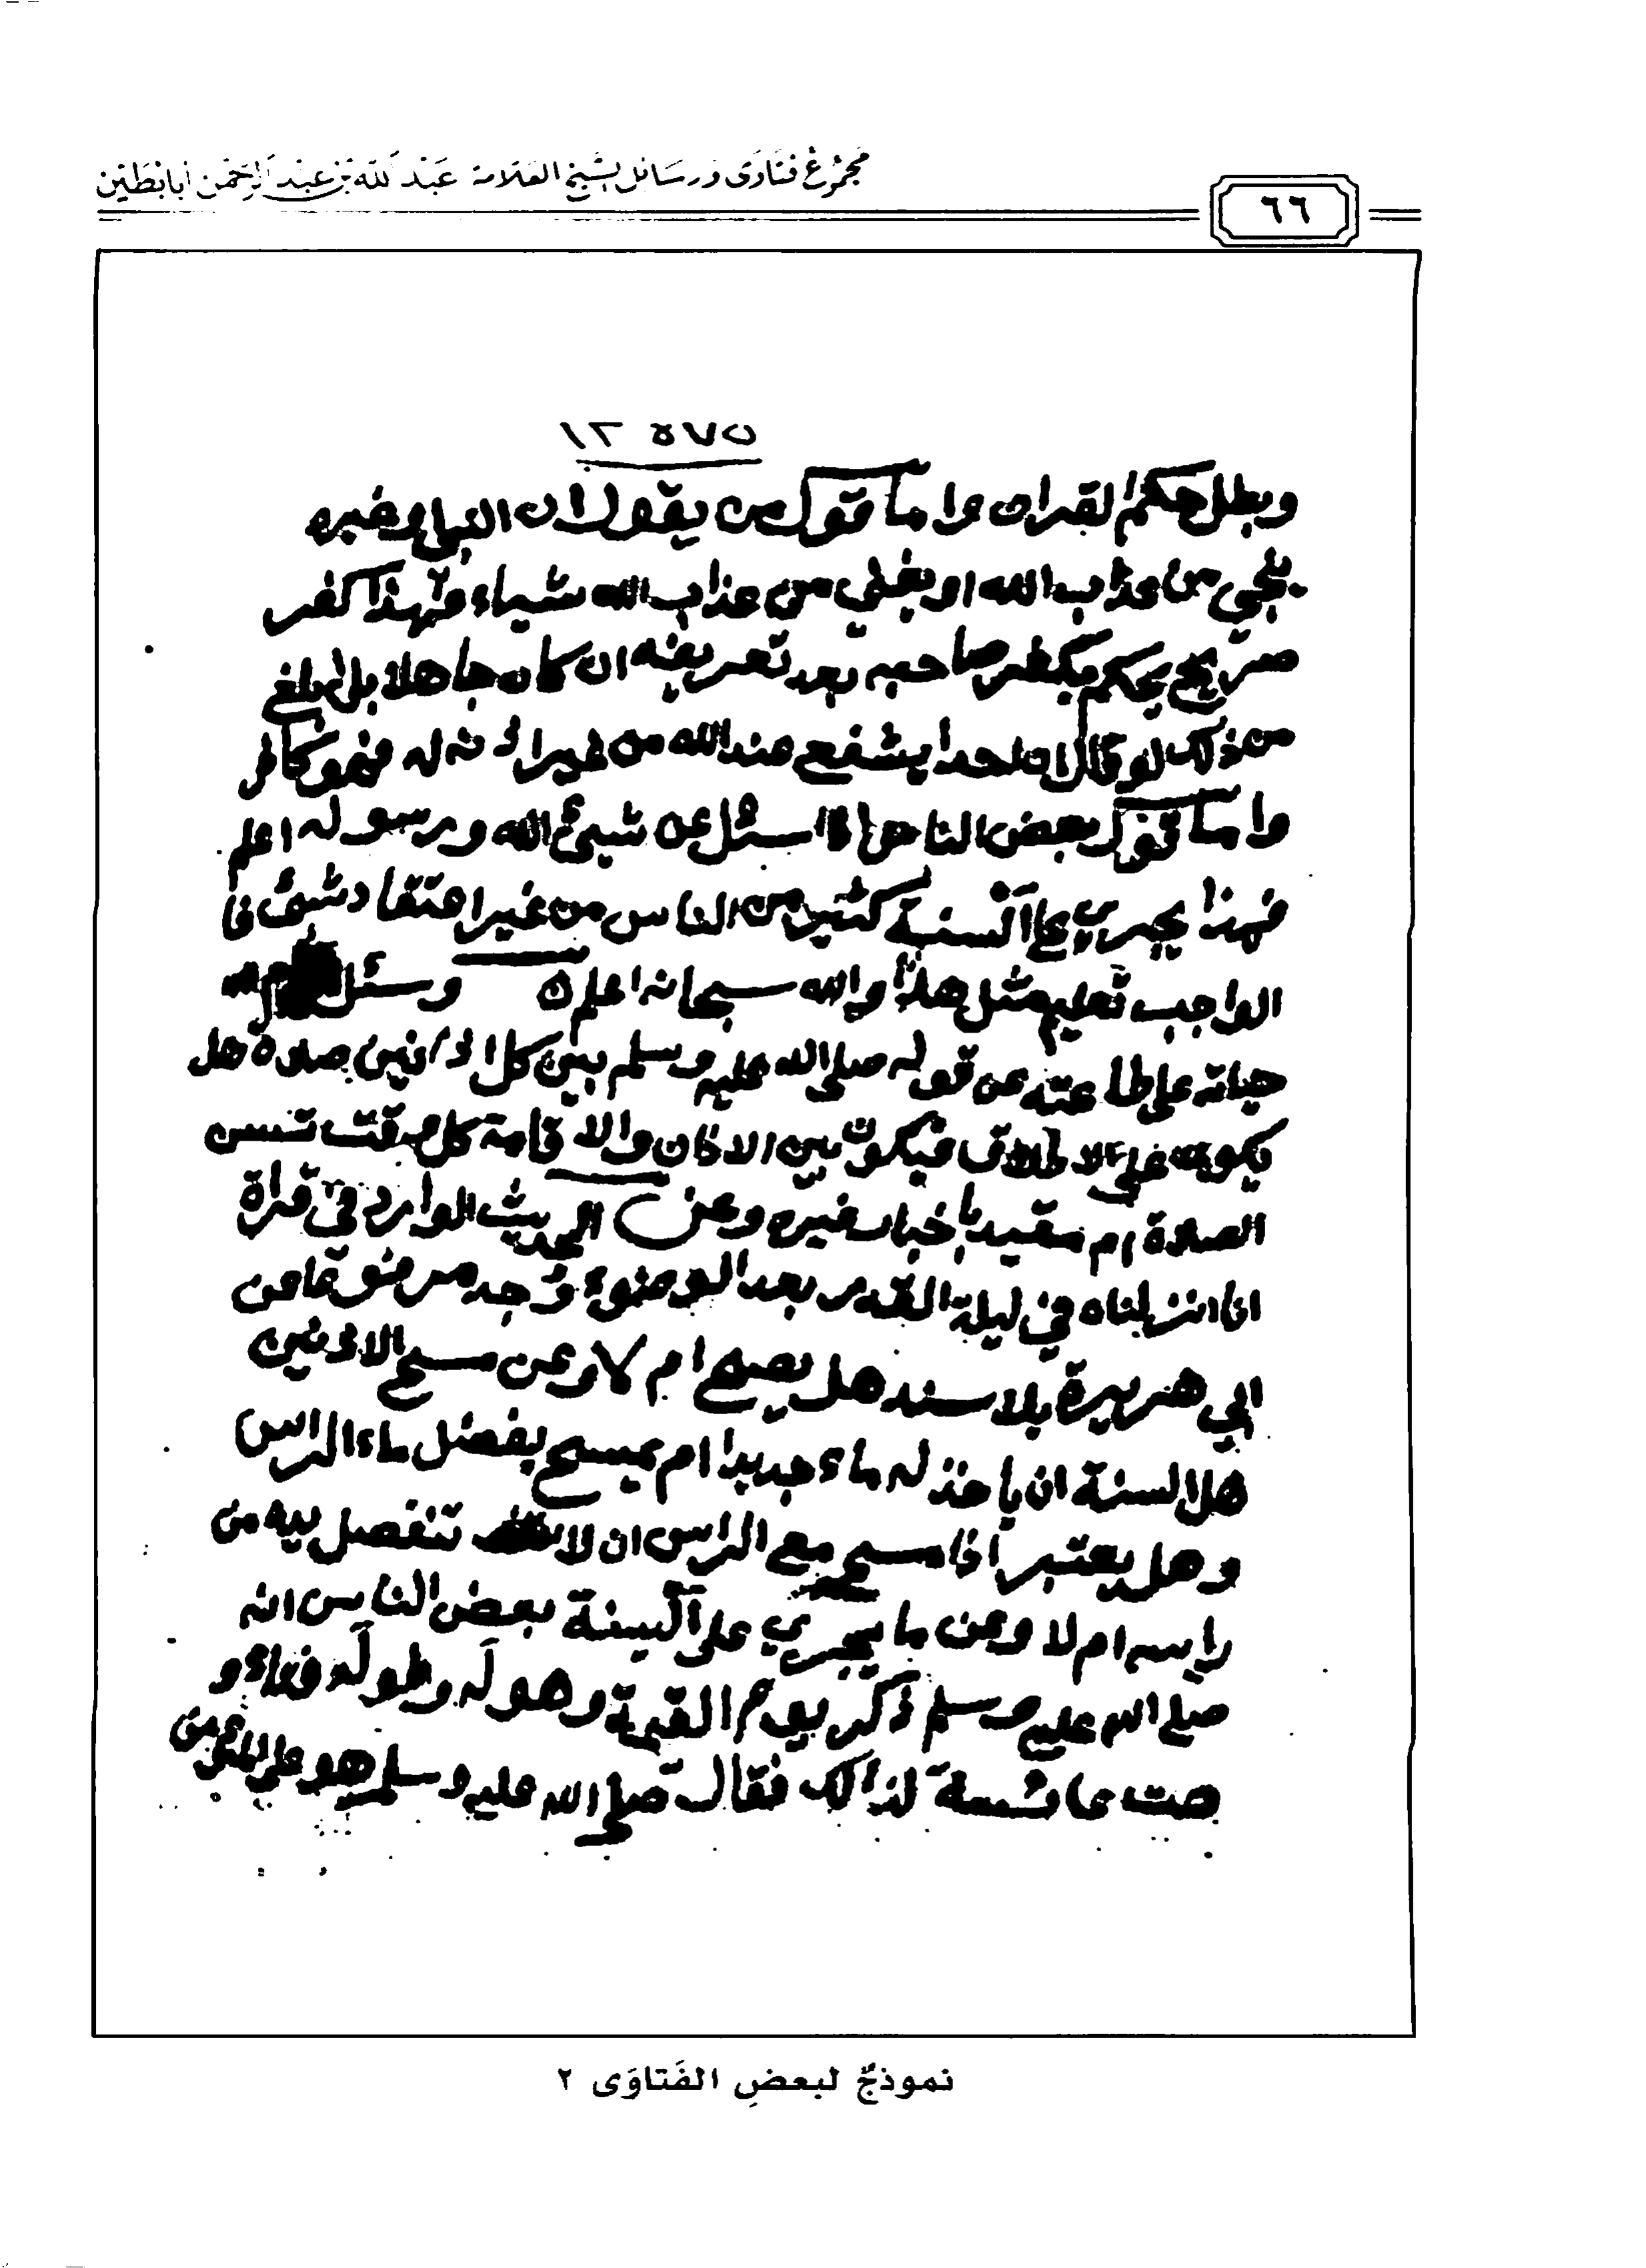 مجموع فتاوى ورسائل الشيخ العلامة عبد الله بن عبد الرحمن أبابطين
٦٦
ويبطل حكم القران واما قول من يقول ان النبي او غيره
ينجي من عذاب الله او يغني من عذاب الله شياء فهذا كفر
صريح يحكم بكفر صاحبه بعد تعريفه ان كان جاهلا بل ابلغ
من ذلك لو قال ان احدا يشفع عند الله من غير اذنه له فهو كافر
واما قول بعض الناس اذا سئل عن شيئ الله ورسوله اعلم
فهذا يجري على السنة كثير من الناس من غير اعتقاد شئ فا
الواجب تعليم مثل هذا والله سبحانه اعلم وسئل
حياته على طاعته عن قوله صلى الله عليه وسلم بين كل اذانين صلاة هل
يكون على الاطلاق فيكون بين الاذان والاقامة كل وقت تسن
الصلاة ام مقيد باخبار غيره وعن الحديث الوارد في قراة
انا انزلناه في ليلة القدر بعد الوضوء وجد مرفوعا من
ابي هريرة بلا سند هل يصح ام لا وعن مسح الاذنين
هل السنة ان ياخذ له ماء جديدا ام يمسح بفضل ماء الراس
وهل يعتبر اذا مسح مع الراس ان لا تنفصل يديه من
راسه ام لا وعن ما يجري على السنة بعض الناس انه
صلى الله عليه وسلم ذكر يوم القيمة وهوله وطوله و
عائشة لذالك فقال صلى الله عليه وسلم هو على
نموذجٌ لبعضِ الفَتاوَى ٢